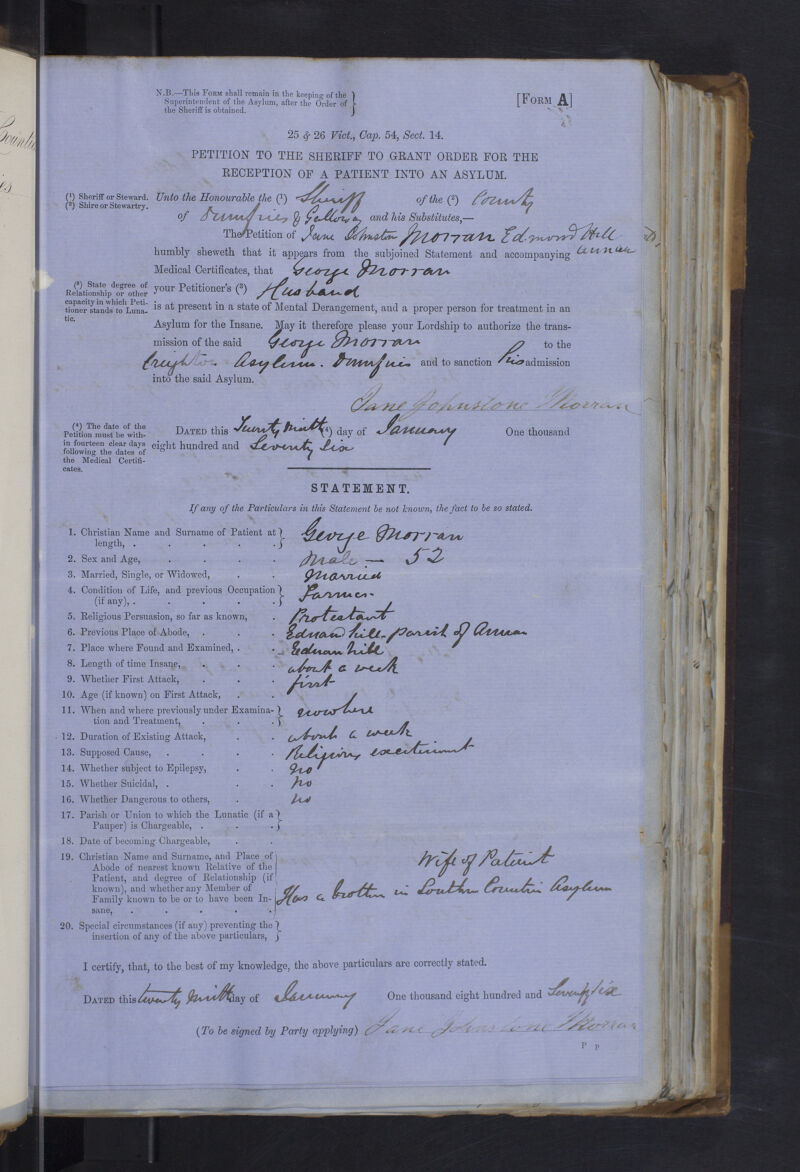 N.B.—This Form shall remain in the keeping of the
Superintendent of the Asylum, after the Order of
the Sheriff is obtained.
[Form A]
25 & 26 Vict., Cap. 54, Sect. 14.
PETITION TO THE SHERIFF TO GRANT ORDER FOR THE
RECEPTION OF A PATIENT INTO AN ASYLUM.
(1) Sheriff or Steward.
(2) Shire or Stewartry.
Unto the Honourable the (1) Sheriff of the (2) County
of Dumfries & Galloway and his Substitutes,—
The Petition of Jane Johnston Morran Hill
humbly sheweth that it appears from the subjoined Statement and accompanying Annan
Medical Certificates, that George Morran
(3) State degree of
Relationship or other
capacity in which Peti-
tioner stands to Luna-
tic.
your Petitioner's (3) Husband
is at present in a state of Mental Derangement, and a proper person for treatment in an
Asylum for the Insane. May it therefore please your Lordship to authorize the trans-
mission of the said George Morran to the
Crichton Asylum. Dumfries and to sanction his admission
into the said Asylum.
Jane Johnstone Morran
(4) The date of the
Petition must be with-
in fourteen clear days
following the dates of
the Medical Certifi-
cates.
Dated this Twenty Ninth (4) day of January One thousand
eight hundred and Seventy Six
STATEMENT.
If any of the Particulars in this Statement be not known, the fact to be so stated.
1. Christian Name and Surname of Patient at
length, . . . . . George Morran
2. Sex and Age, . . . . Male — 52
3. Married, Single, or Widowed, . . Married
4. Condition of Life, and previous Occupation
(if any), . . . . . Farmer
5. Religious Persuasion, so far as known, . Protestant
6. Previous Place of Abode, . . . hill parish of Annan
7. Place where Found and Examined, . .
8. Length of time Insane, . . . about a week
9. Whether First Attack, . . . first
10. Age (if known) on First Attack, . .
11. When and where previously under Examina-
tion and Treatment, . . . nowhere
12. Duration of Existing Attack, . . about a week
13. Supposed Cause, . . . . Religious excitement
14. Whether subject to Epilepsy, . . no
15. Whether Suicidal, . . . no
16. Whether Dangerous to others, . . no
17. Parish or Union to which the Lunatic (if a
Pauper) is Chargeable, . . .
18. Date of becoming Chargeable, . .
19. Christian Name and Surname, and Place of
Abode of nearest known Relative of the
Patient, and degree of Relationship (if
known), and whether any Member of
Family known to be or to have been In-
sane, . . . . .
Wife of Patient
Has a brother in Southern Counties Asylum
20. Special circumstances (if any) preventing the
insertion of any of the above particulars,
I certify, that, to the best of my knowledge, the above particulars are correctly stated.
Dated this twenty ninth day of January One thousand eight hundred and Seventy six
(To be signed by Party applying) Jane Johnstone Morran
P p